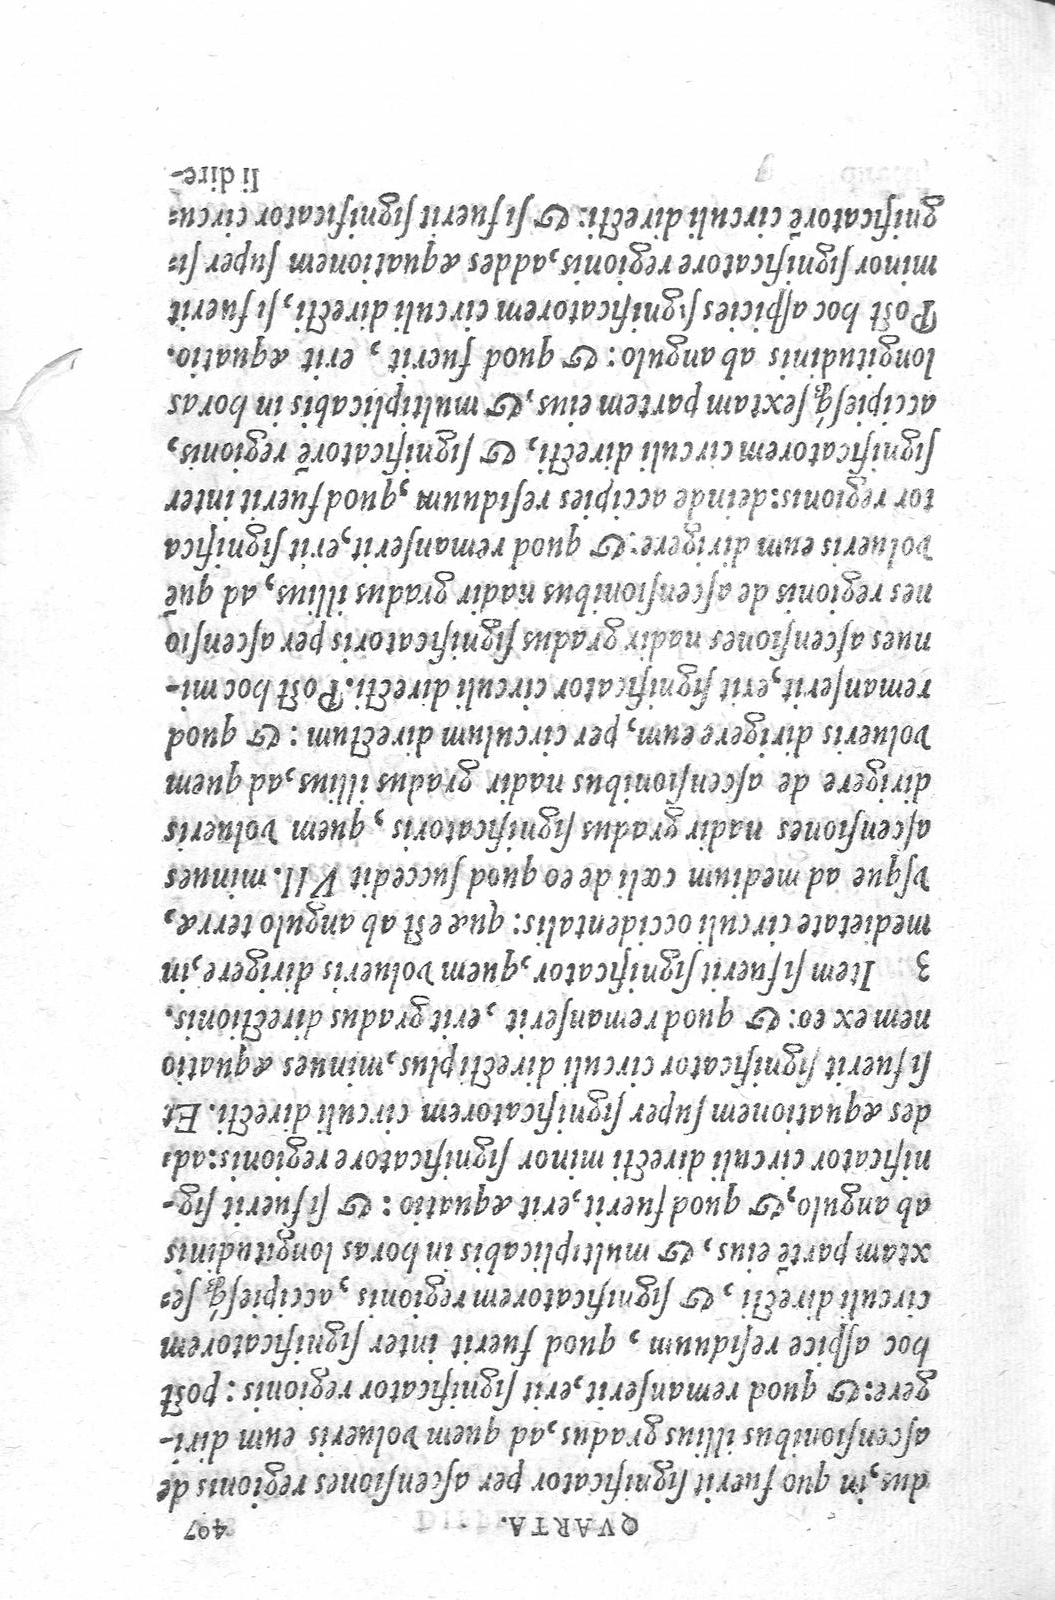 QVARTA. 407
dus, in quo fuerit ſignificator per aſcenſiones regionis de
aſcenſionibus illius gradus, ad quem volueris eum diri-
gere: & quod remanſerit, erit ſignificator regionis: poſt
hoc aſpice reſiduum, quod fuerit inter ſignificatorem
circuli directi, & ſignificatorem regionis, accipieſq́; ſe⸗
xtam partē eius, & multiplicabis in horas longitudinis
ab angulo, & quod fuerit, erit æquatio: & ſi fuerit ſig-
nificator circuli directi minor ſignificatore regionis: ad⸗
des æquationem ſuper ſignificatorem circuli directi. Et
ſi fuerit ſignificator circuli directi plus, minues æquatio
nem ex eo: & quod remanſerit, erit gradus directionis.
3 Item ſi fuerit ſignificator, quem volueris dirigere, in
medietate circuli occidentalis: quæ eſt ab angulo terræ,
vſque ad medium cœli de eo quod ſuccedit VII. minues
aſcenſiones nadir gradus ſignificatoris, quem volueris
dirigere de aſcenſionibus nadir gradus illius, ad quem
volueris dirigere eum, per circulum directum: & quod
remanſerit, erit ſignificator circuli directi. Poſt hoc mi-
nues aſcenſiones nadir gradus ſignificatoris per aſcenſio
nes regionis de aſcenſionibus nadir gradus illius, ad quē
volueris eum dirigere: & quod remanſerit, erit ſignifica
tor regionis: deinde accipies reſiduum, quod fuerit inter
ſignificatorem circuli directi, & ſignificatorē regionis,
accipieſq́; ſextam partem eius, & multiplicabis in horas
longitudinis ab angulo: & quod fuerit, erit æquatio.
Poſt hoc aſpicies ſignificatorem circuli directi, ſi fuerit
minor ſignificatore regionis, addes æquationem ſuper ſi⸗
gnificatorē circuli directi: & ſi fuerit ſignificator circu⸗
li dire-